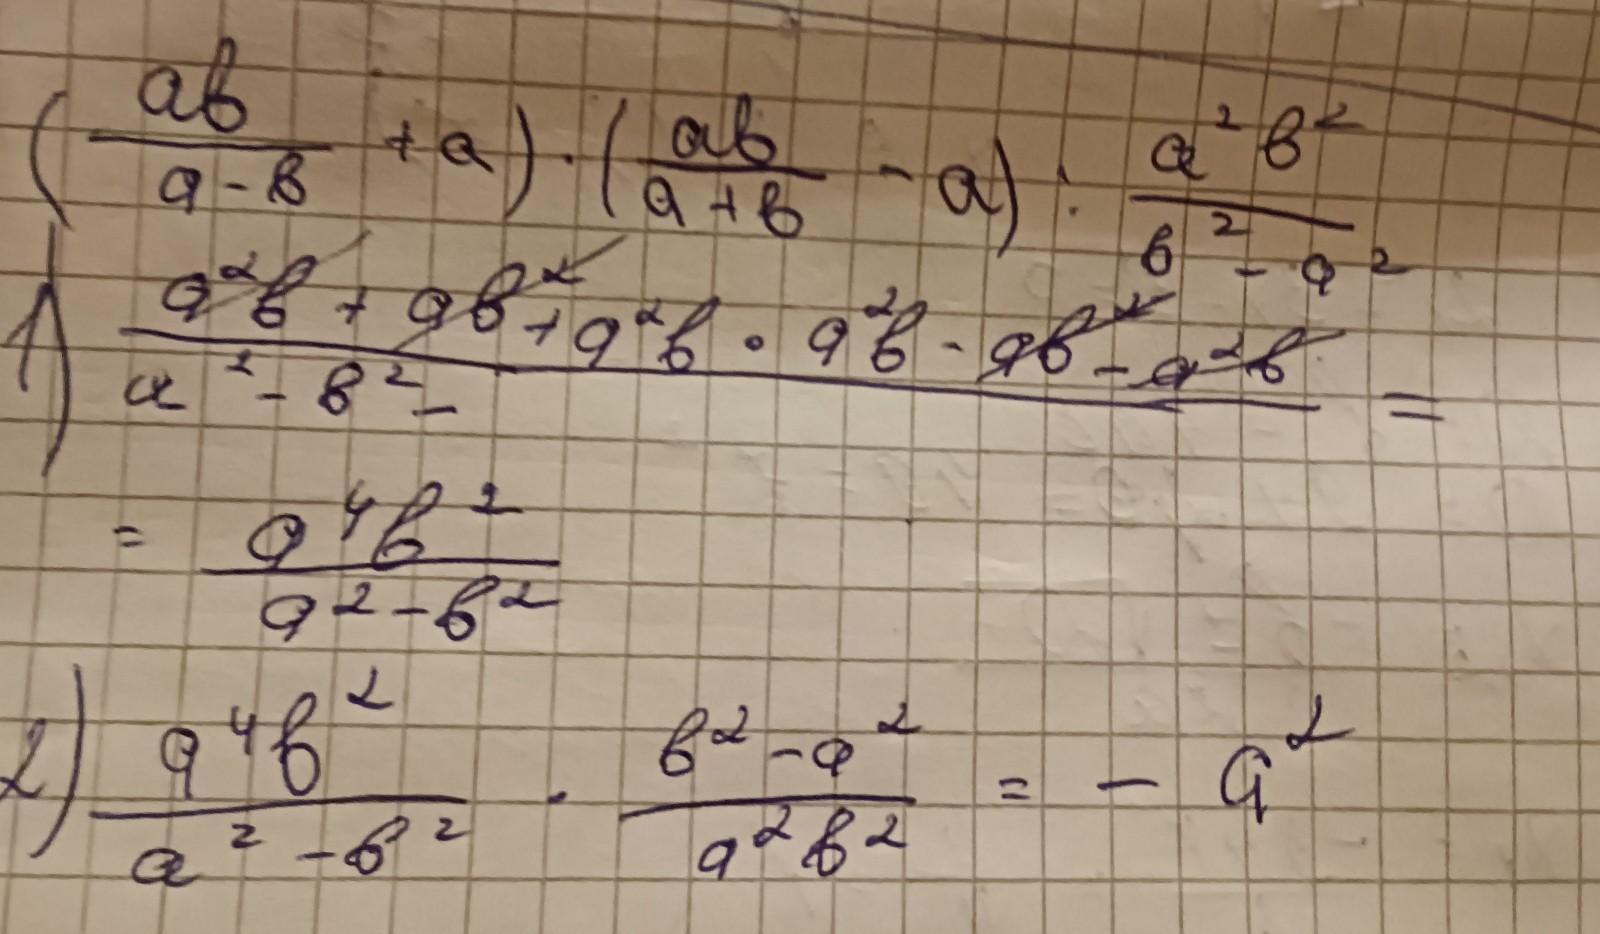 (ab/(a-b) + a) · (ab/(a+b) - a) : a²b²/(b²-a²)
1) (a²b + ab² + a²b · a²b - ab² - a²b)/(a² - b² -) =
= a⁴b²/(a²-b²)
2) a⁴b²/(a²-b²) · (b²-a²)/(a²b²) = - a²